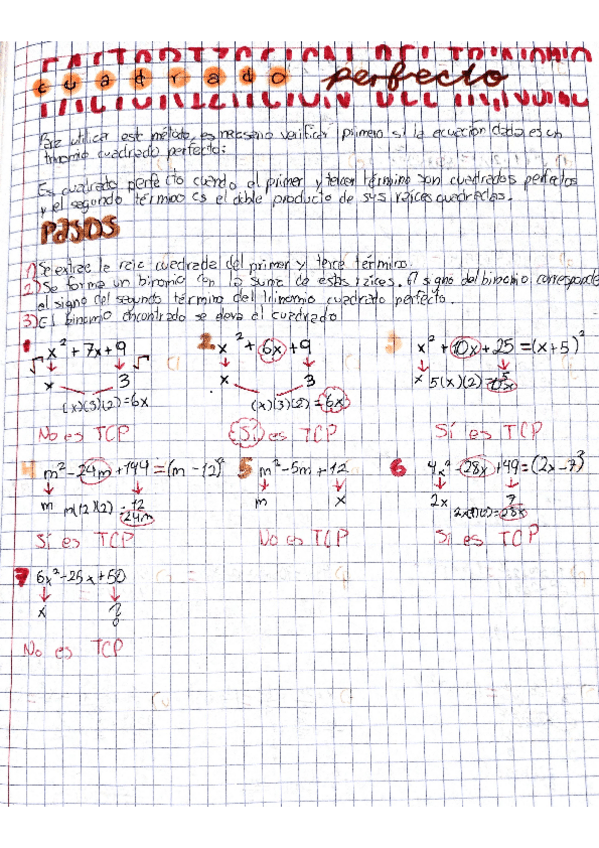 FACTORIZACION DEL TRINOMIO
cuadrado perfecto
Para utilizar este método, es necesario verificar primero si la ecuación dada es un
trinomio cuadrado perfecto:
Es cuadrado perfecto cuando el primer y tercer término son cuadrados perfectos
y el segundo término es el doble producto de sus raíces cuadradas.
PASOS
1) Se extrae la raiz cuadrada del primer y terce término.
2) Se forma un binomio con la suma de estas raices. El signo del binomio corresponde
al signo del segundo término del trinomio cuadrado perfecto.
3) El binomio encontrado se eleva al cuadrado
1 x² + 7x + 9 2. x² + 6x + 9 3 x² + 10x + 25 = (x + 5)²
√ √
x 3 x 3 x 5(x)(2) = 10x
(x)(3)(2) = 6x (x)(3)(2) = 6x
No es TCP Sí es TCP Sí es TCP
4 m² - 24m + 144 = (m - 12)² 5 m² - 5m + 12 6 4x² - 28x + 49 = (2x - 7)²
m 12 m x 2x 7
m(12)(2) = 24m 2x(7)(2) = 28x
Sí es TCP No es TCP Si es TCP
7 6x² - 25x + 50
x ?
No es TCP